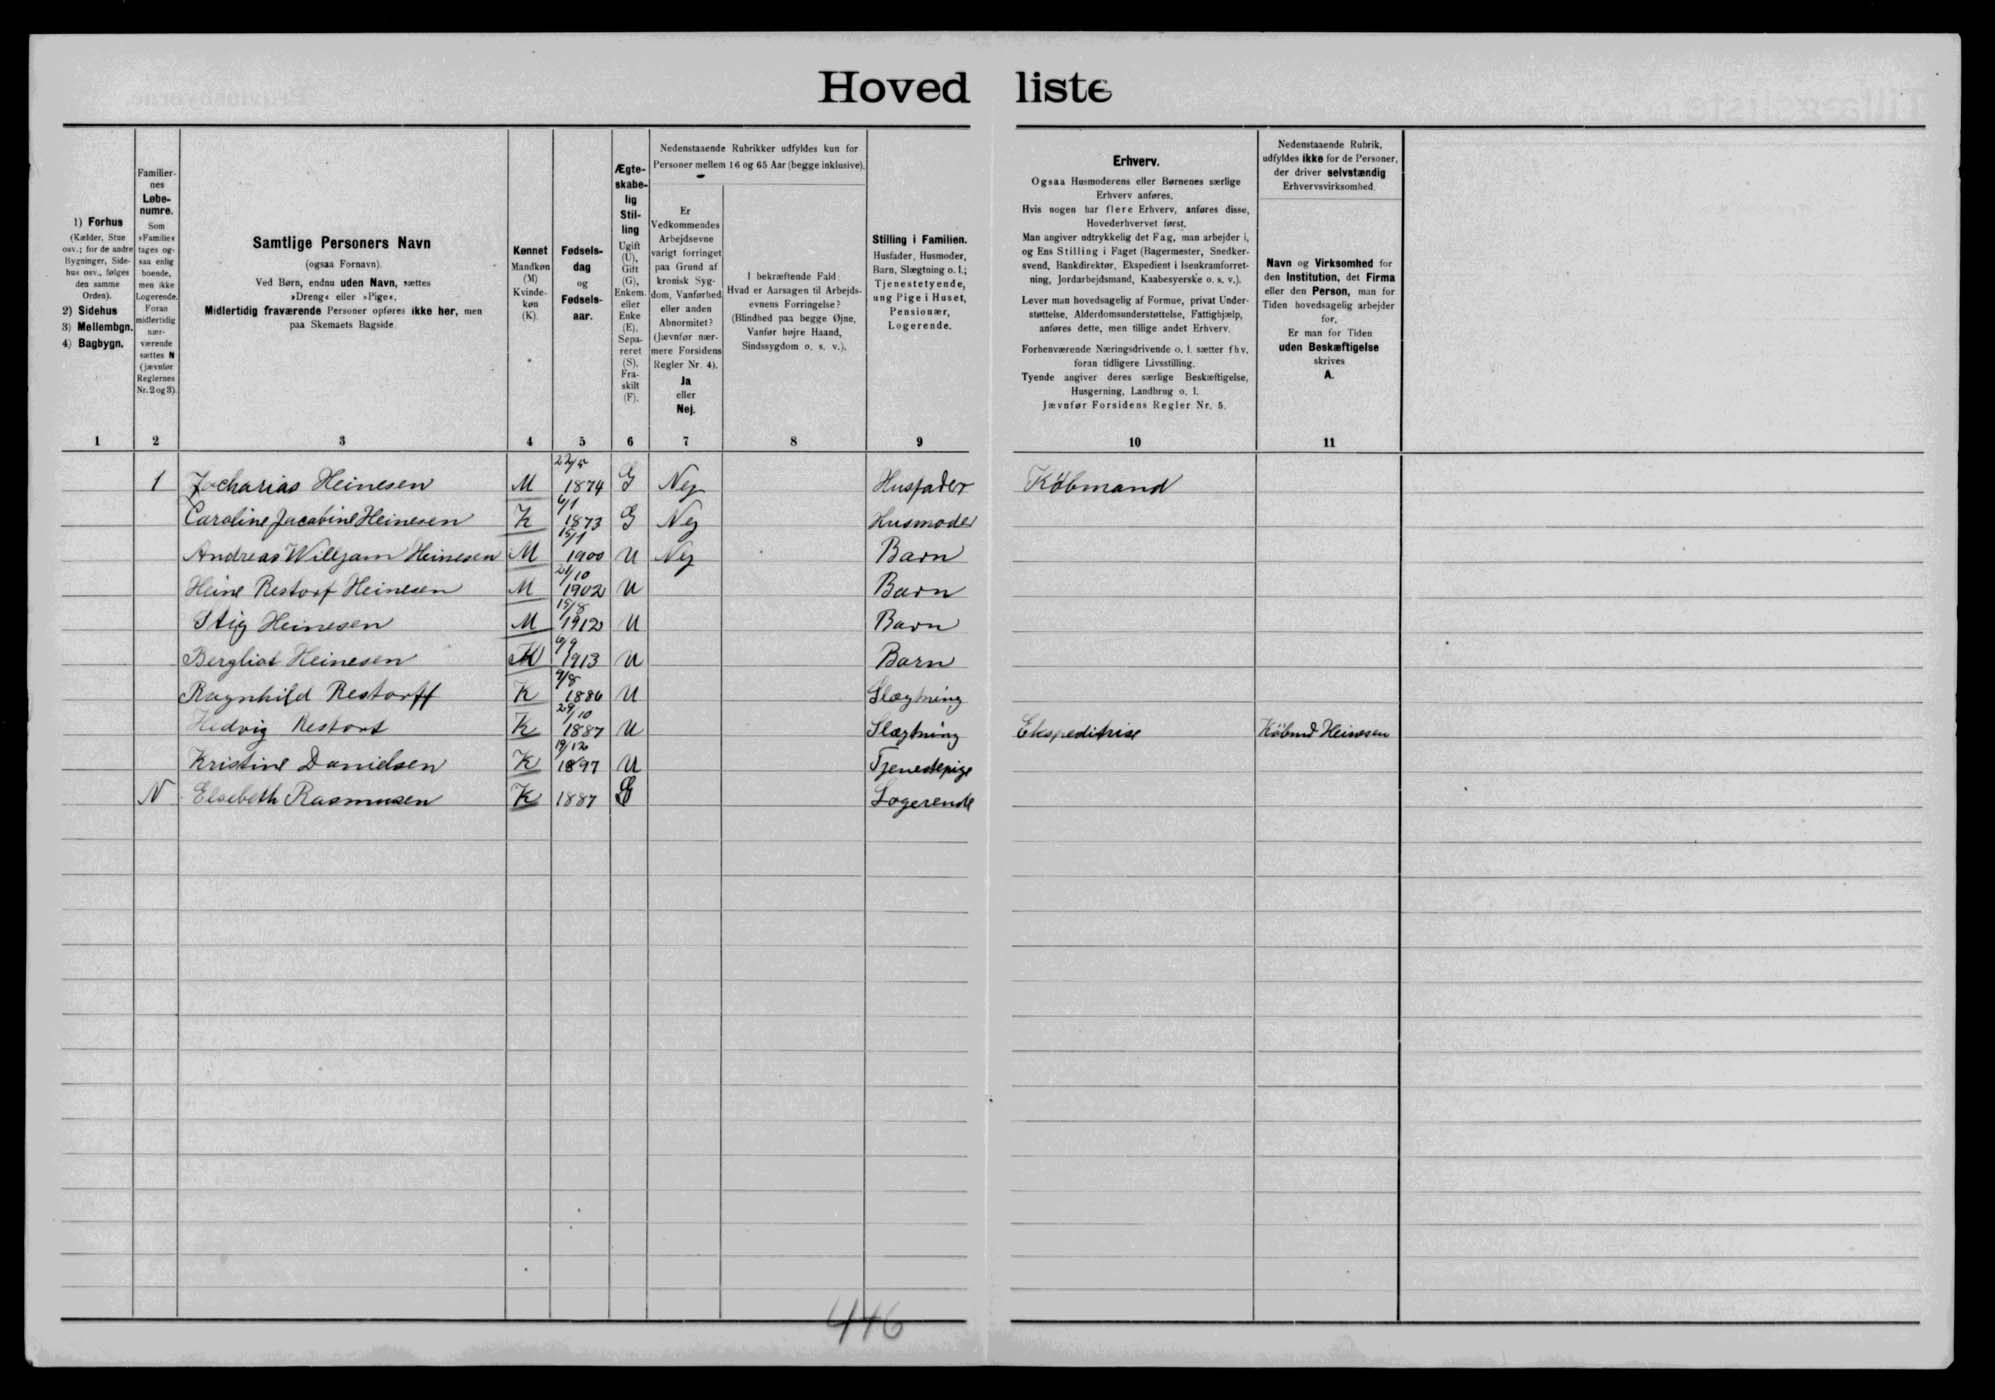 Hovedliste
1) Forhus
(Kælder, Stue
osv.; for de andre
Bygninger, Side-
hus osv., følges
den samme
Orden).
2) Sidehus
3) Mellembgn.
4) Bagbygn.
Familier-
nes
Løbe-
numre.
Som
»Familie«
tages og-
saa enlig
boende,
men ikke
Logerende.
Foran
midlertidig
nær-
værende
sættes N
(jævnfør
Reglernes
Nr. 2 og 3).
Samtlige Personers Navn
(ogsaa Fornavn).
Ved Børn, endnu uden Navn, sættes
»Dreng« eller »Pige«.
Midlertidig fraværende Personer opføres ikke her, men
paa Skemaets Bagside.
Kønnet
Mandkøn
(M)
Kvinde-
køn
(K).
Fødsels-
dag
og
Fødsels-
aar.
Ægte-
skabe-
lig
Stil-
ling
Ugift
(U),
Gift
(G),
Enkem.
eller
Enke
(E),
Sepa-
reret
(S),
Fra-
skilt
(F).
Nedenstaaende Rubrikker udfyldes kun for
Personer mellem 16 og 65 Aar (begge inklusive).
Er
Vedkommendes
Arbejdsevne
varigt forringet
paa Grund af
kronisk Syg-
dom, Vanførhed
eller anden
Abnormitet?
(Jævnfør nær-
mere Forsidens
Regler Nr. 4).
Ja
eller
Nej.
I bekræftende Fald:
Hvad er Aarsagen til Arbejds-
evnens Forringelse?
(Blindhed paa begge Øjne,
Vanfør højre Haand,
Sindssygdom o. s. v.).
Stilling i Familien.
Husfader, Husmoder,
Barn, Slægtning o. l.;
Tjenestetyende,
ung Pige i Huset,
Pensionær,
Logerende.
Erhverv.
Ogsaa Husmoderens eller Børnenes særlige
Erhverv anføres.
Hvis nogen har flere Erhverv, anføres disse,
Hovederhvervet først.
Man angiver udtrykkelig det Fag, man arbejder i,
og Ens Stilling i Faget (Bagermester, Snedker-
svend, Bankdirektør, Ekspedient i Isenkramforret-
ning, Jordarbejdsmand, Kaabesyerske o. s. v.).
Lever man hovedsagelig af Formue, privat Under-
støttelse, Alderdomsunderstøttelse, Fattighjælp,
anføres dette, men tillige andet Erhverv.
Forhenværende Næringsdrivende o. l. sætter fhv.
foran tidligere Livsstilling.
Tyende angiver deres særlige Beskæftigelse,
Husgerning, Landbrug o. l.
Jævnfør Forsidens Regler Nr. 5.
Nedenstaaende Rubrik,
udfyldes ikke for de Personer,
der driver selvstændig
Erhvervsvirksomhed.
Navn og Virksomhed for
den Institution, det Firma
eller den Person, man for
Tiden hovedsagelig arbejder
for.
Er man for Tiden
uden Beskæftigelse
skrives
A.
1 2 3 4 5 6 7 8 9 10 11
1 Zacharias Heinesen M 22/5 1874 G Nej Husfader Købmand
Caroline Jacobine Heinesen K 6/1 1873 G Nej Husmoder
Andreas Willjam Heinesen M 15/1 1900 U Nej Barn
Heine Restorf Heinesen M 21/10 1902 U Barn
Stig Heinesen M 15/8 1912 U Barn
Bergliot Heinesen K 6/9 1913 U Barn
Ragnhild Restorff K 7/8 1886 U Slægtning
Hedvig Restorf K 29/10 1887 U Slægtning Ekspeditrise Købmd Heinesen
Kristine Danielsen K 19/12 1897 U Tjenestepige
N Elsebeth Rasmusen K 1887 Logerende
446